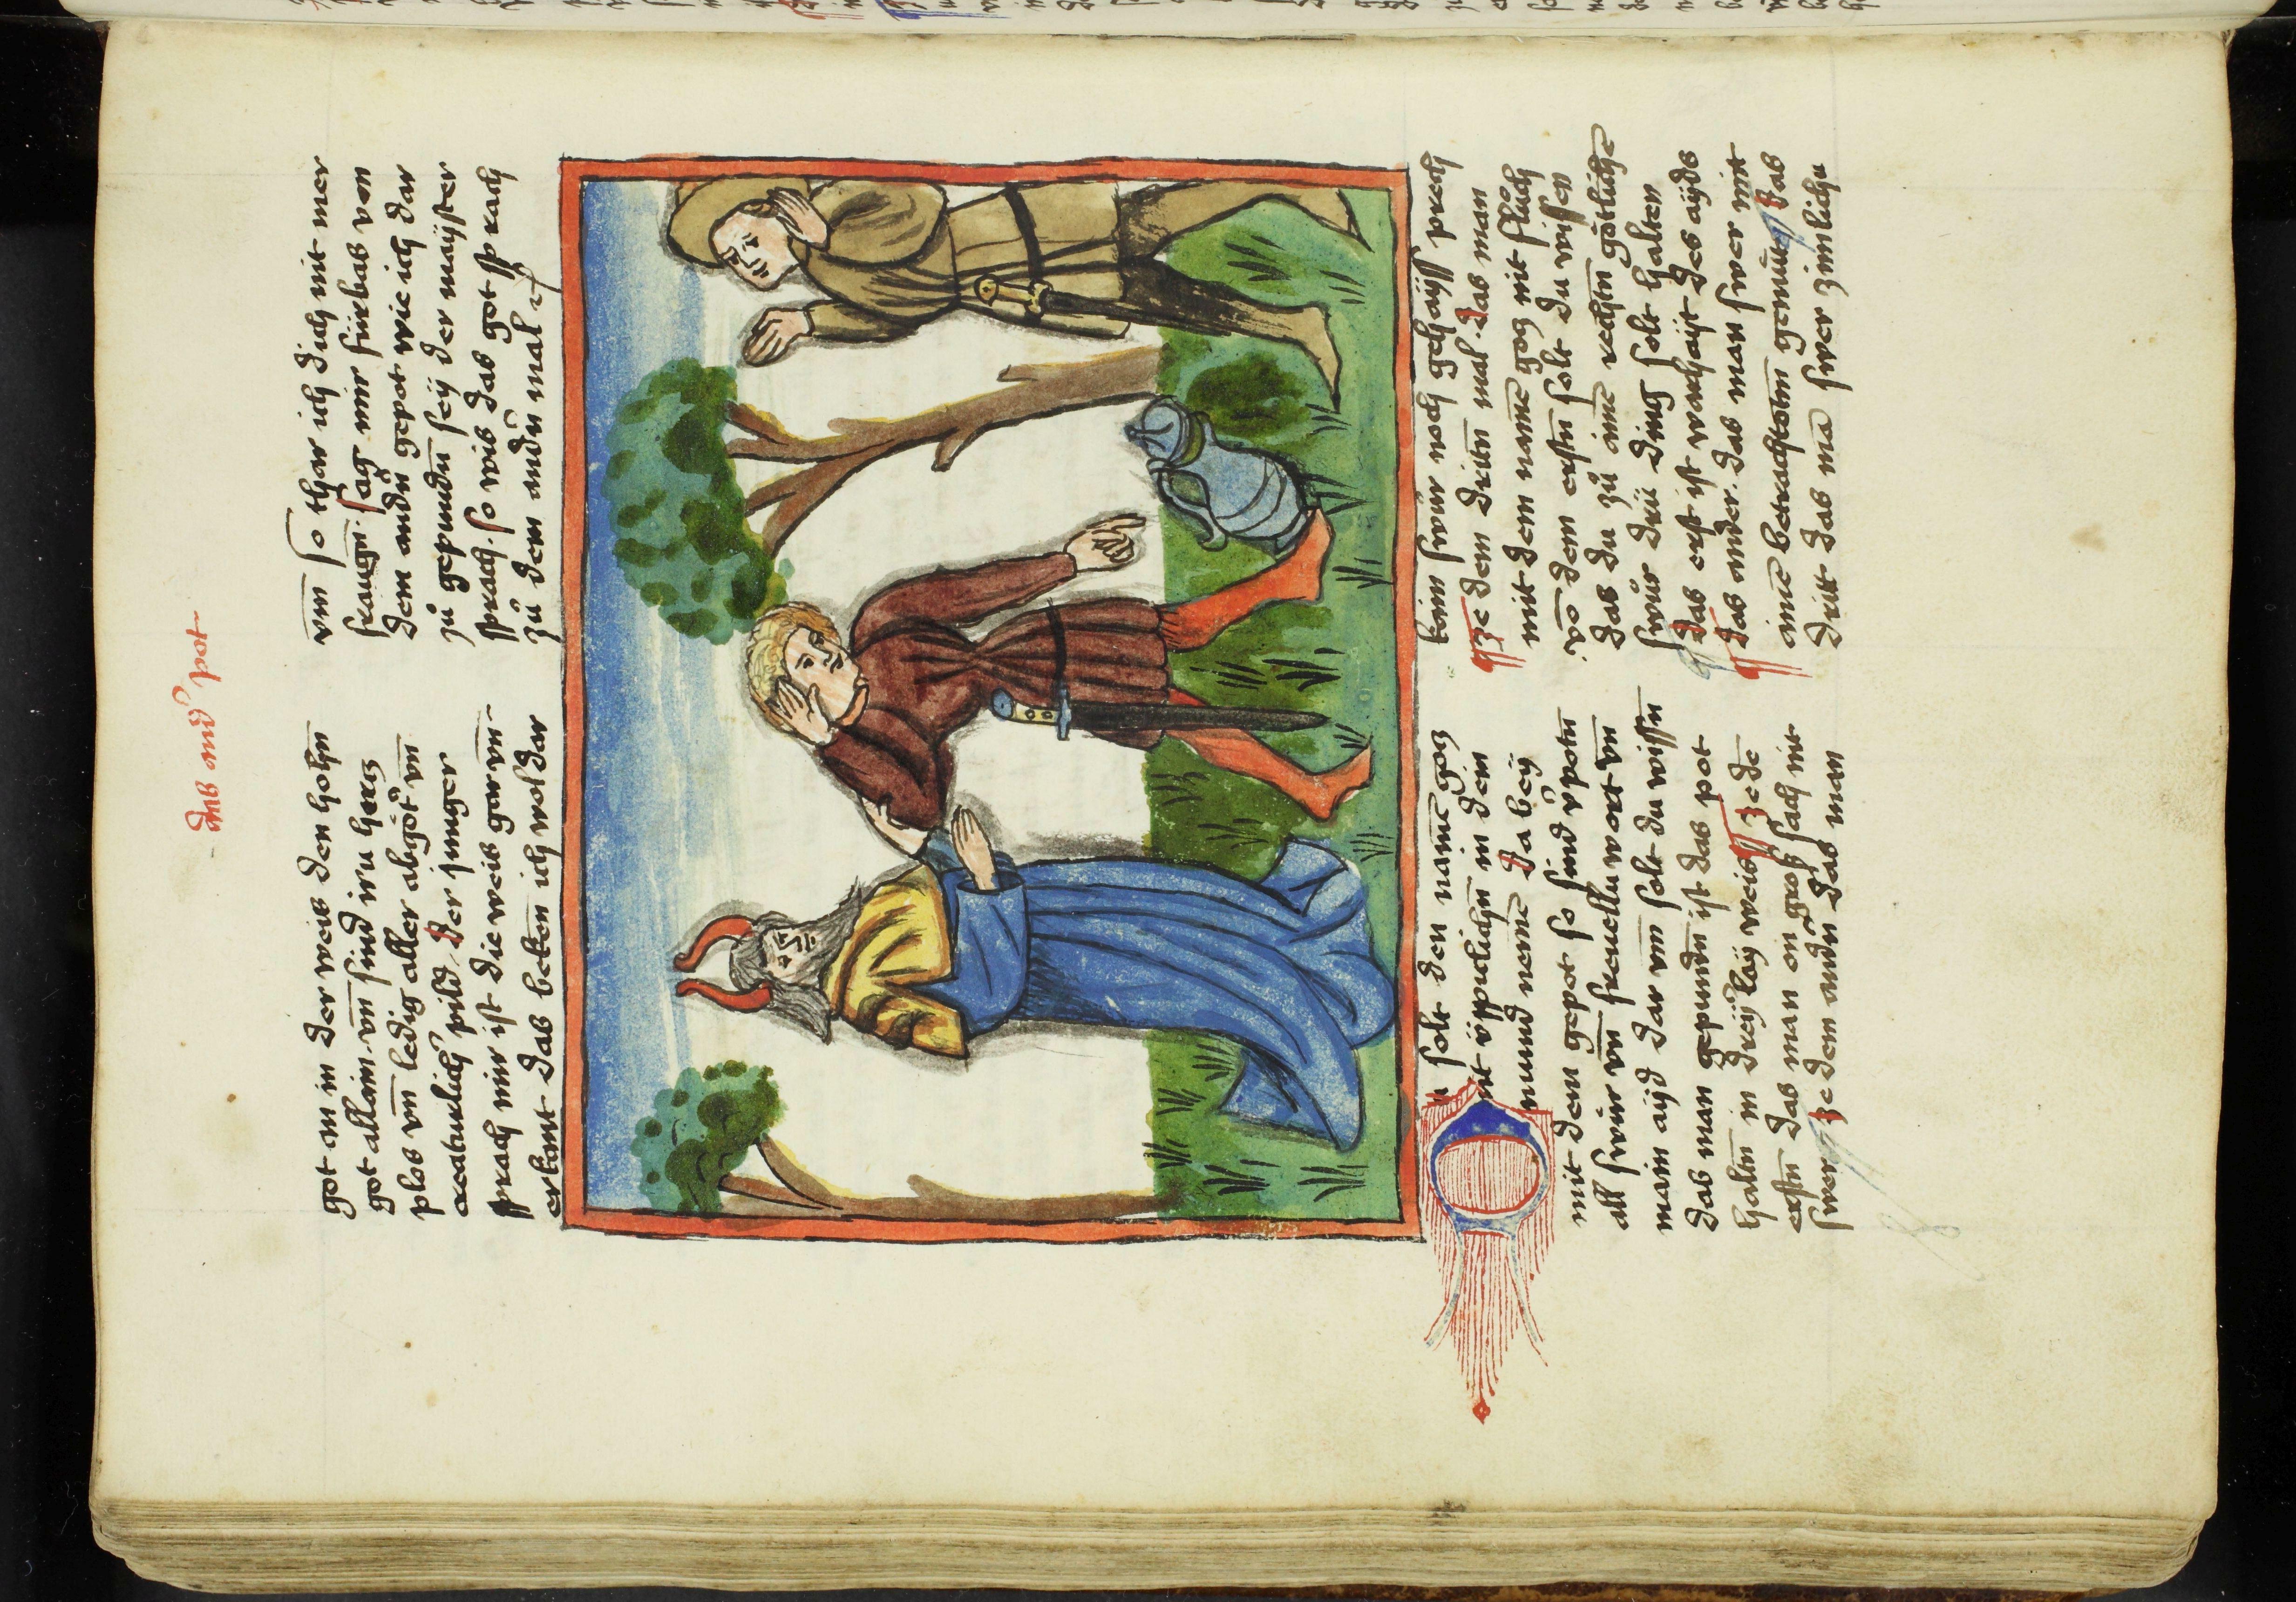 Das and' pot
got an in der weis den
got allain. vn̄ sind iru hercz
plos vn̄ ledig aller abgöt' vn̄
creaturlich' pild. Der iunger
sprach mir ist die weis gar vn̄-
erkant. Das beken ich wol dar
vmm so thar ich dich nit mer
fraugn̄. sag mir fürbas von
dem andn̄ gepot wie ich dar
zů gepundn̄ seÿ der maÿster
sprach. so wis das got sprach
zů dem andn̄ mal
Du solt den namē gocz
nit üppiclichn̄ in dein
mund nemē Da beÿ
mit dem gepot so sind v'potn̄
all swür vn̄ freuellu wort vn̄
main aÿd dar vm̄ solt du wissn̄
das man gepundn̄ ist das pot
haltn̄ in dreÿ'laÿ weis ¶ ze dē
erstn̄ das man on gross sach nit
swer ¶ ze dem andn̄ das man
kain swür noch gehaÿss prech
¶ ze dem dritn̄ mal. das man
mit dem namē gocz nit flůch
vō dem erstn̄ solt du wissen
das du zů aimē rechtn̄ götlichē
swůr drü ding solt halten
¶ das erst ist warhaÿt des aÿds
¶ das ander. das man swer mit
ainē betrachtotm̄ gemüt ¶ das
dritt das mā swer zimlichu